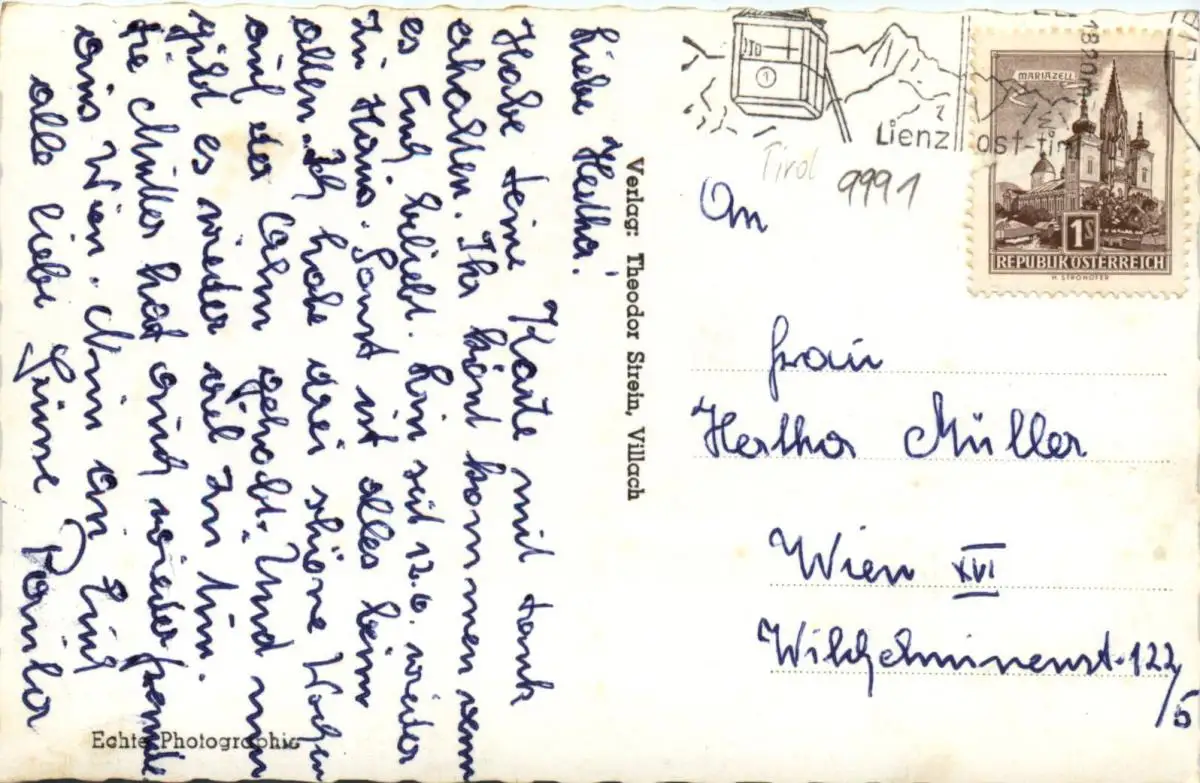 Liebe Hertha!
Habe deine Karte mit dank
erhalten. Ihr könt kommen wenn
es Euch beliebt. bin seit 12.6. wieder
Zu Haus. Sonst ist alles beim
allen. Ich habe drei schöne Wochen
auf der Calm gehabt. Und nun
gibt es wieder viel Zu tun.
Die Müller hat auch wieder fremde
aus Wien. Nun an Euch
alle liebe Grüße Paula
Echte Photographie
Verlag: Theodor Strein, Villach
Lienz
Ost-tir
1820
Tirol
9991
MARIAZELL
1S
REPUBLIK ÖSTERREICH
H. STROHOFER
An
Frau
Hertha Müller
Wien XVI
Wilhelminenst. 122/5